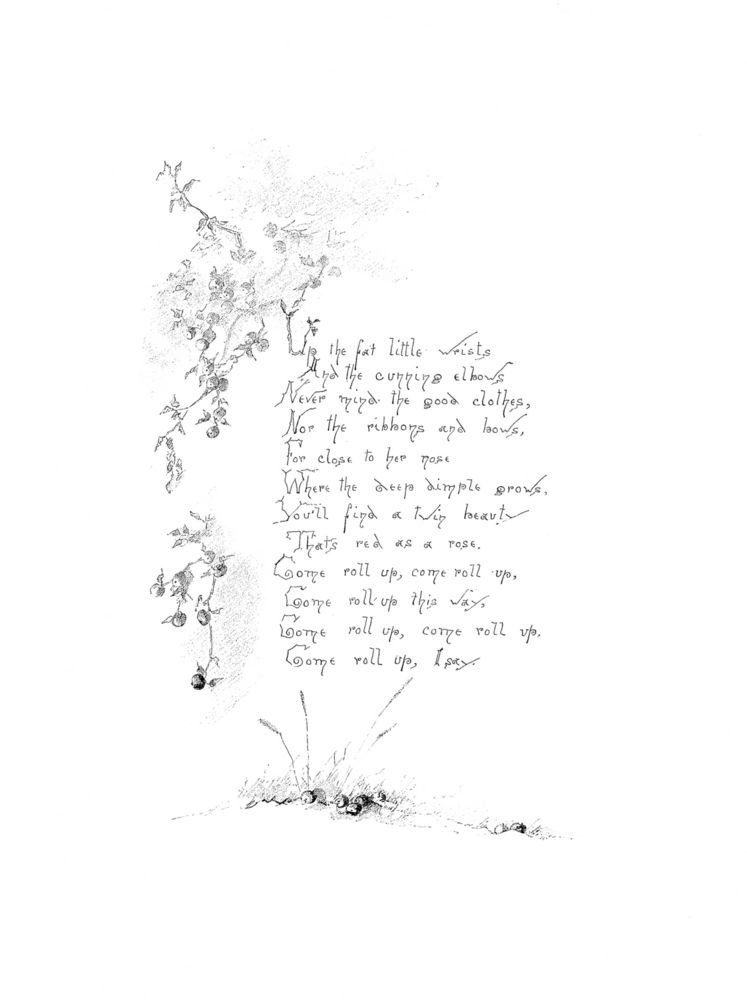 Up the fat little wrists
And the cunning elbows
Never mind the good clothes,
Nor the ribbons and bows,
For close to her nose
Where the deep dimple grows,
You'll find a twin beauty
Thats red as a rose.
Come roll up, come roll up,
Come roll up this way,
Come roll up, come roll up.
Come roll up, I say.